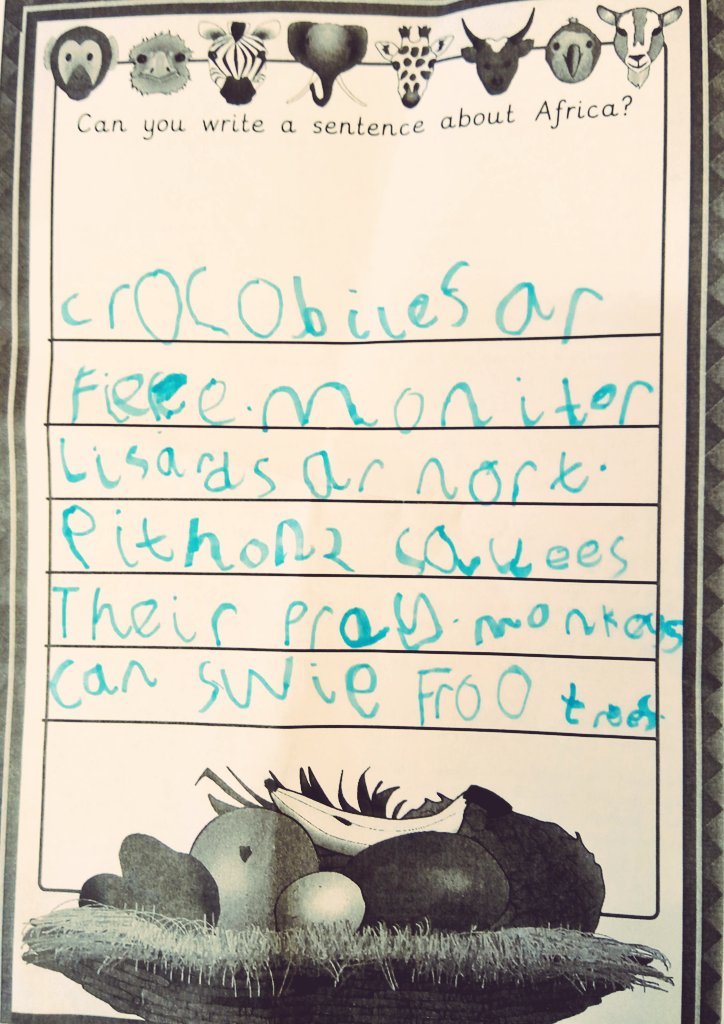 Can you write a sentence about Africa?
crocobiles ar
Fierce. monitor
Lisards ar nort.
Pithons sqwees
Their pray. monkeys
can swie Froo trees.